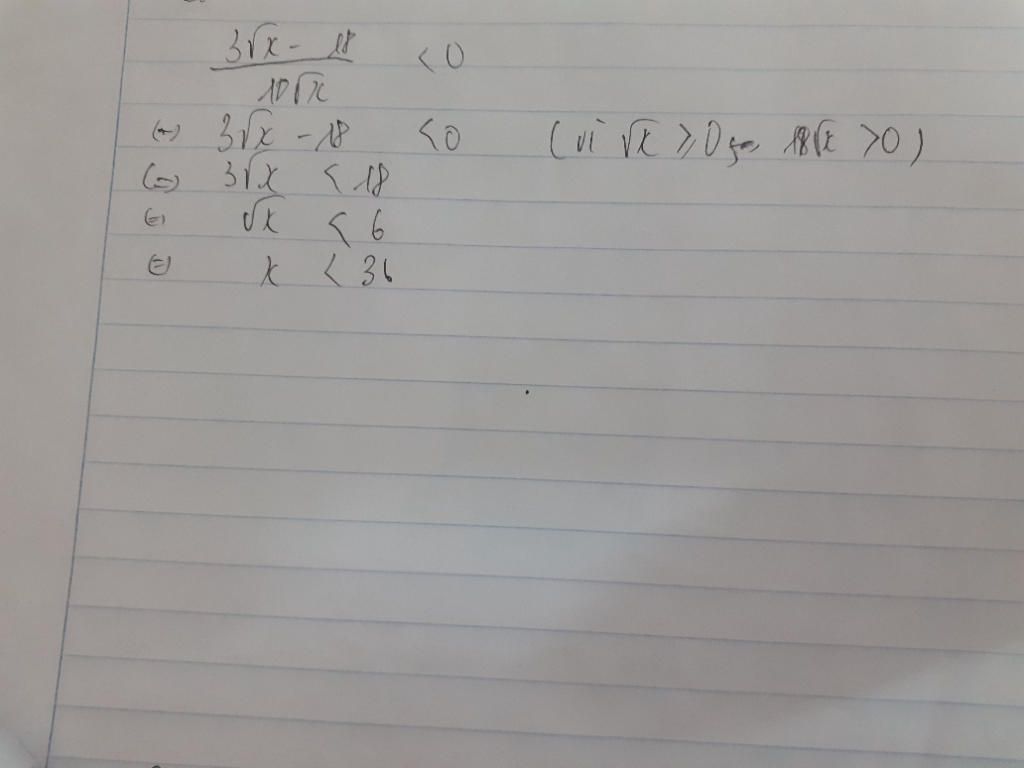 3√x - 18 / 10√x < 0
(=) 3√x - 18 < 0 (vì √x ≥ 0 √x > 0)
(=) 3√x < 18
(=) √x < 6
(=) x < 36